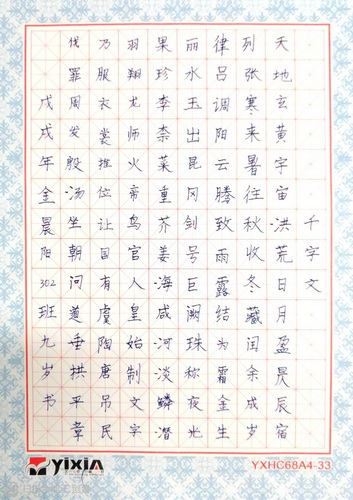 千字文
天地玄黄宇宙洪荒日月盈昃辰宿
列张寒来暑往秋收冬藏闰余成岁
律吕调阳云腾致雨露结为霜金生
丽水玉出昆冈剑号巨阙珠称夜光
果珍李柰菜重芥姜海咸河淡鳞潜
羽翔龙师火帝鸟官人皇始制文字
乃服衣裳推位让国有虞陶唐吊民
伐罪周发殷汤坐朝问道垂拱平章
戊戌年金晨阳302班九岁书
yixin
YXHC68A4-33